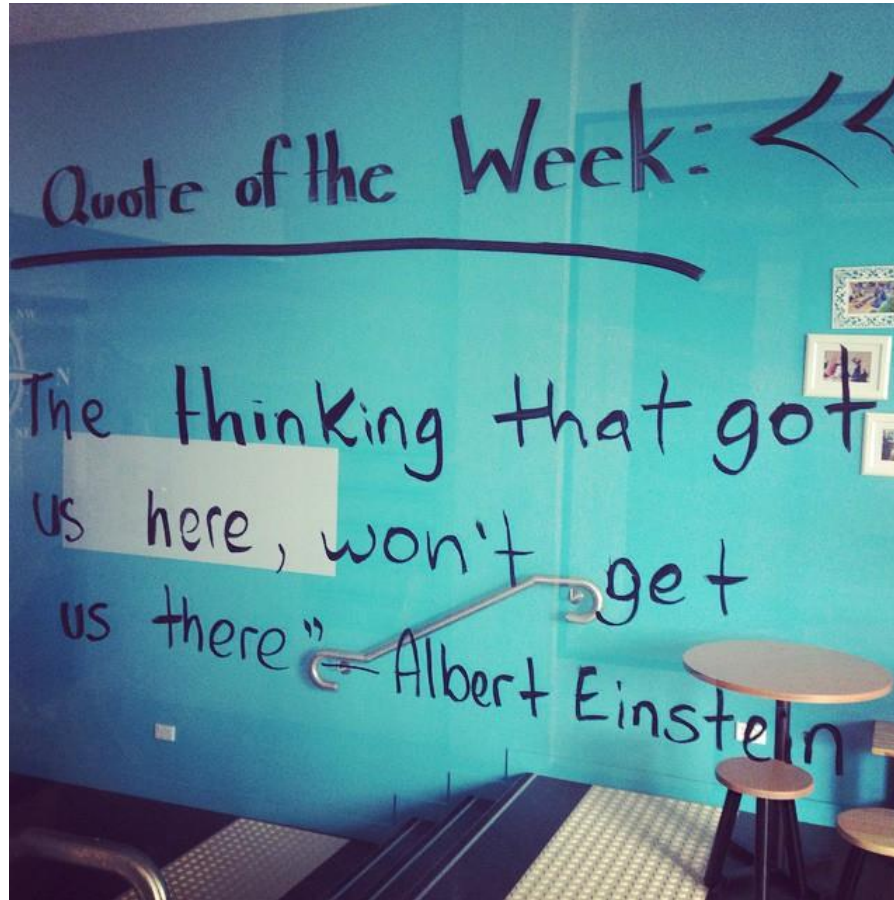 Quote of the Week: <<
The thinking that got
us here, won't get
us there” - Albert Einstein
NW
N